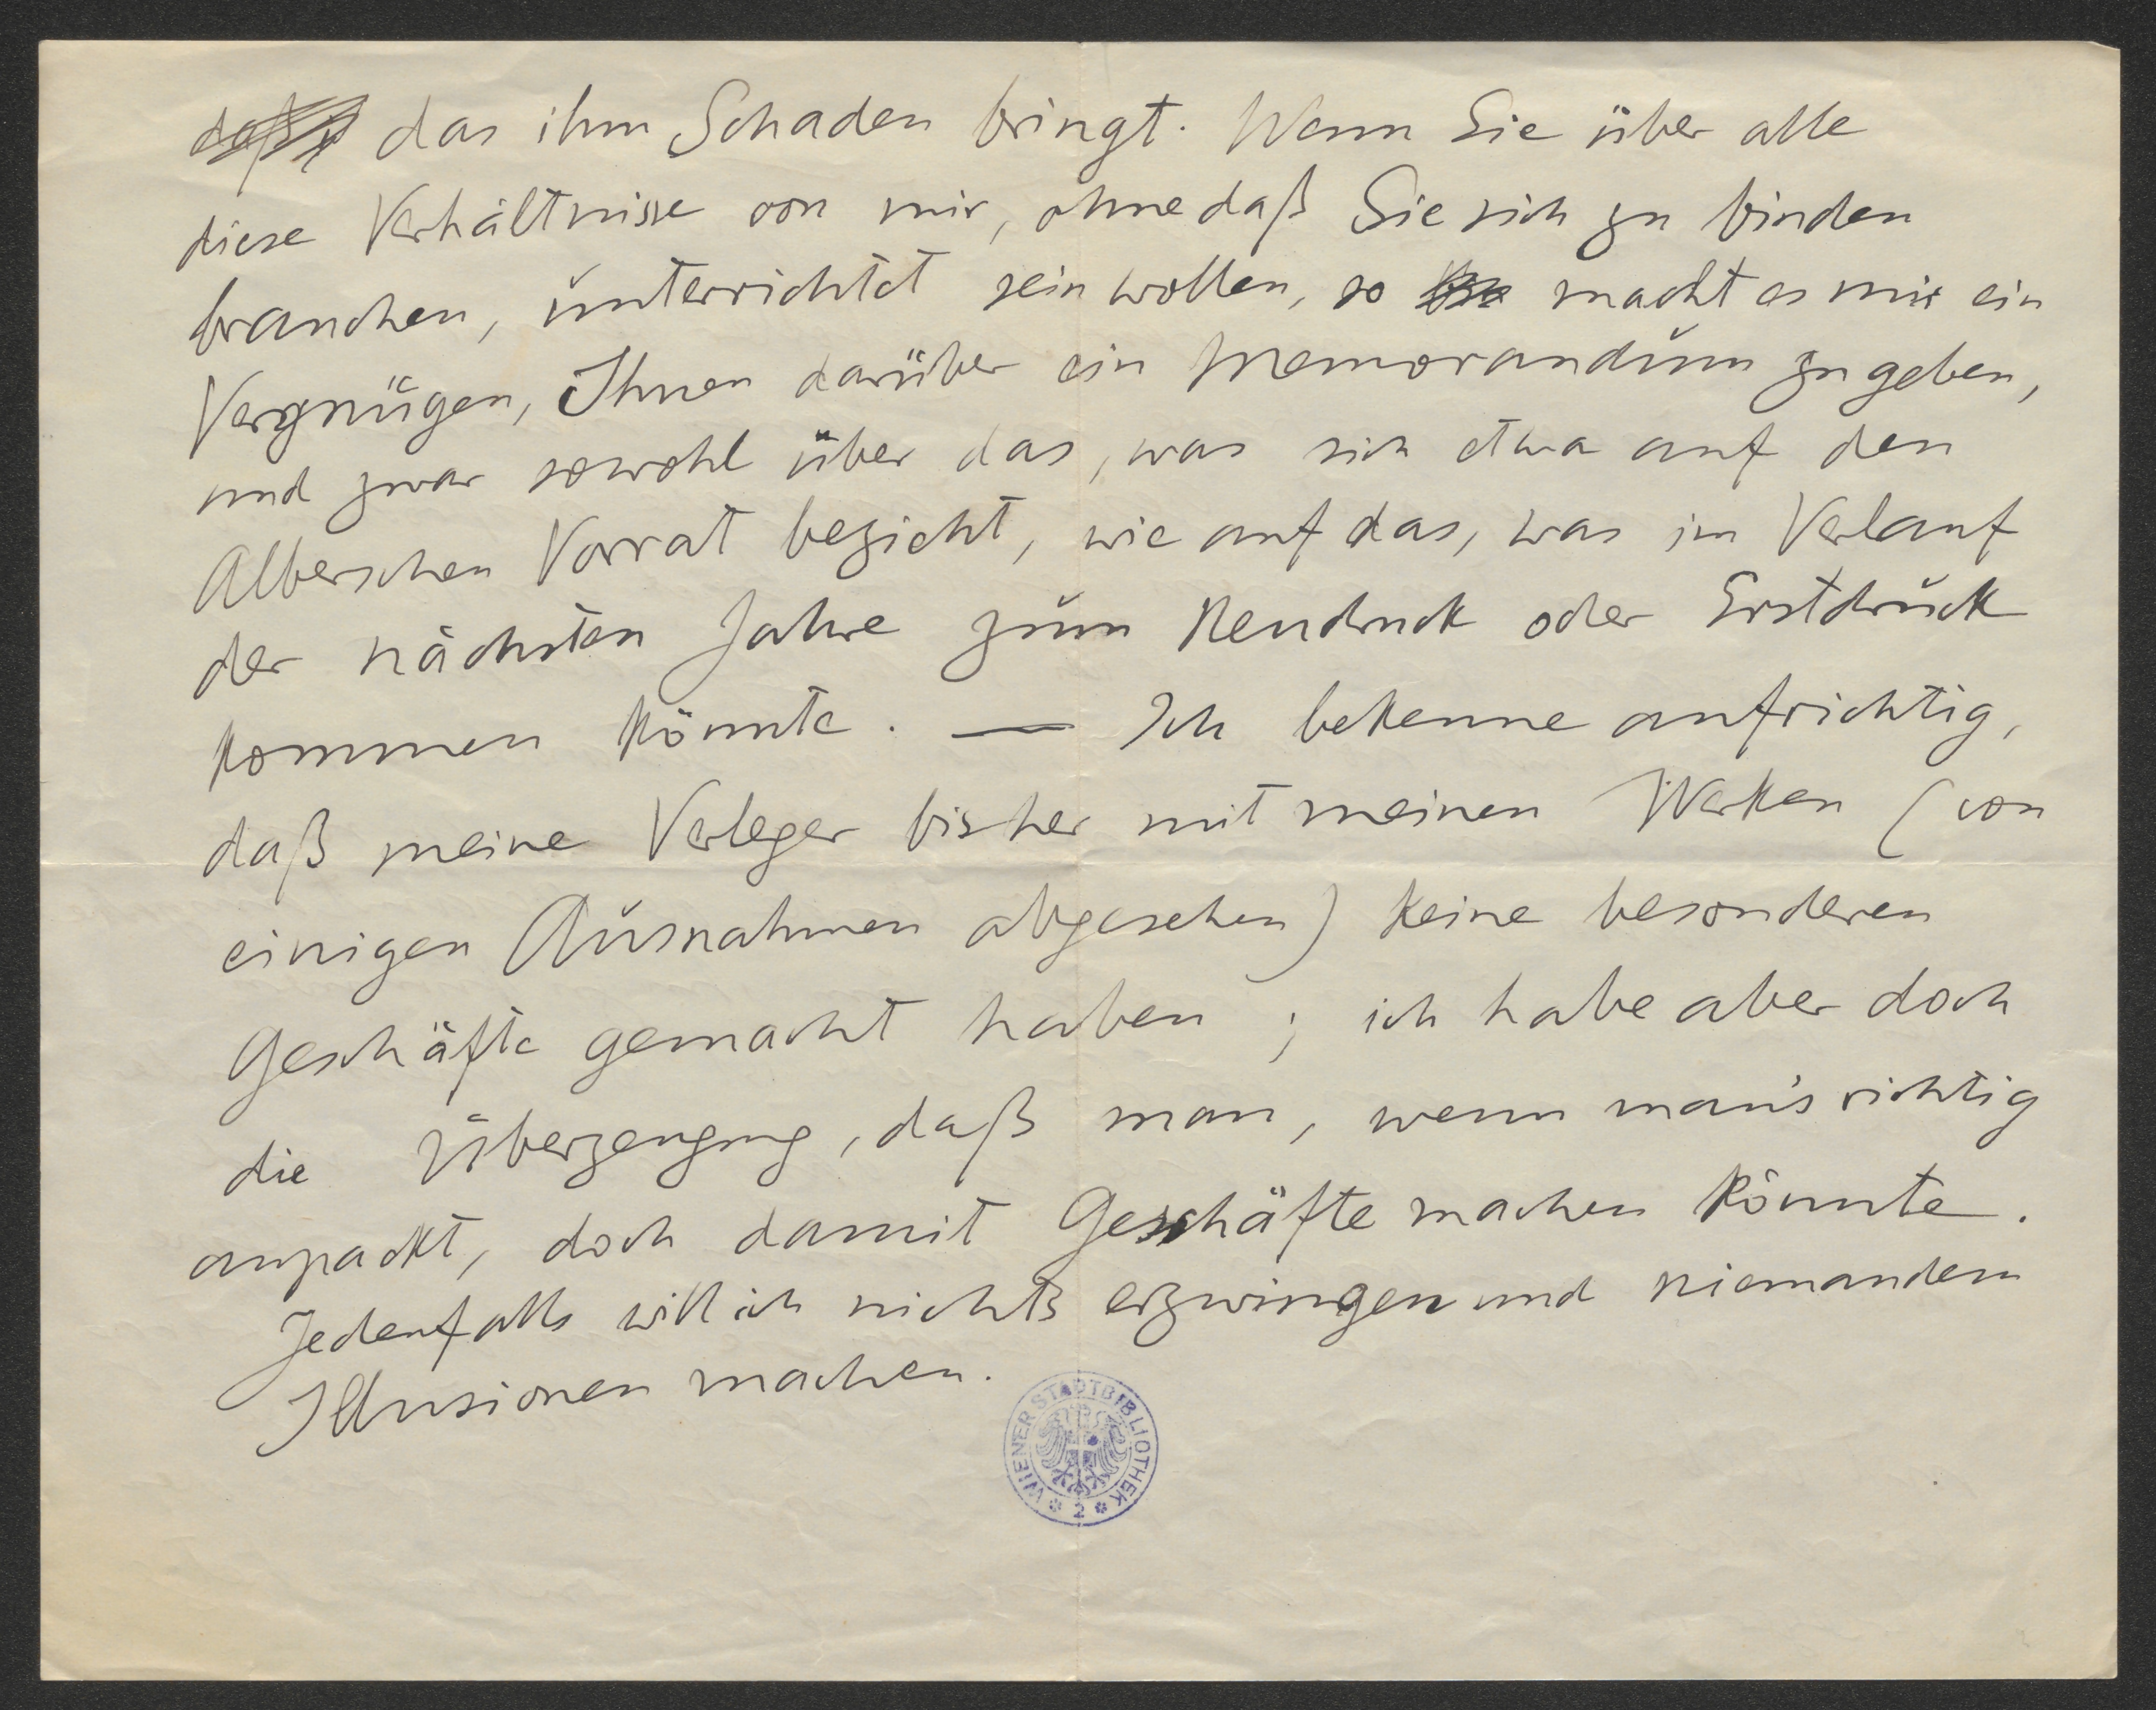 das ihm Schaden bringt. Wenn Sie über alle
diese Verhältnisse von mir, ohne daß Sie sich zu binden
brauchen, unterrichtet sein wollen, so macht es mir ein
Vergnügen, Ihnen darüber ein Memorandum zu geben,
und zwar sowohl über das, was sich etwa auf den
Alberschen Vorrat bezieht, wie auf das, was im Verlauf
der nächsten Jahre zum Neudruck oder Erstdruck
kommen könnte. — Ich bekenne aufrichtig,
daß meine Verleger bisher mit meinen Werken (von
einigen Ausnahmen abgesehen) keine besonderen
Geschäfte gemacht haben; ich habe aber doch
die Überzeugung, daß man, wenn man's richtig
anpackt, doch damit Geschäfte machen könnte.
Jedenfalls will ich nichts erzwingen und niemandem
Illusionen machen.
WIENER STADTBIBLIOTHEK
* 2 *